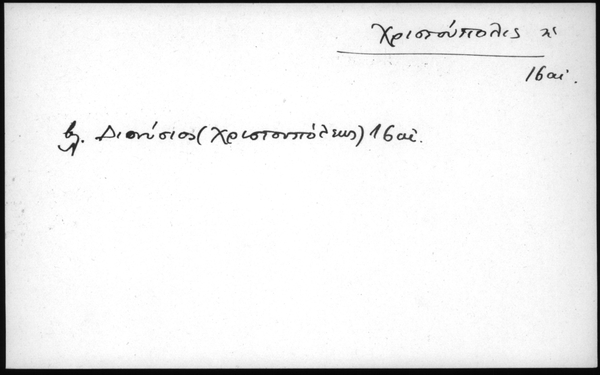 Χριστούπολις
16 αἰ.
βλ. Διονύσιος (Χριστουπόλεως) 16 αἰ.